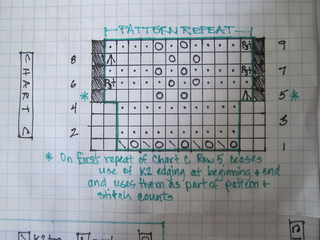 PATTERN REPEAT
9
8
7
6
* 5 *
4
3
2
1
CHART C
* On first repeat of Chart C, Row 5, ceases
use of K2 edging at beginning + end
and uses them as part of pattern +
stitch counts